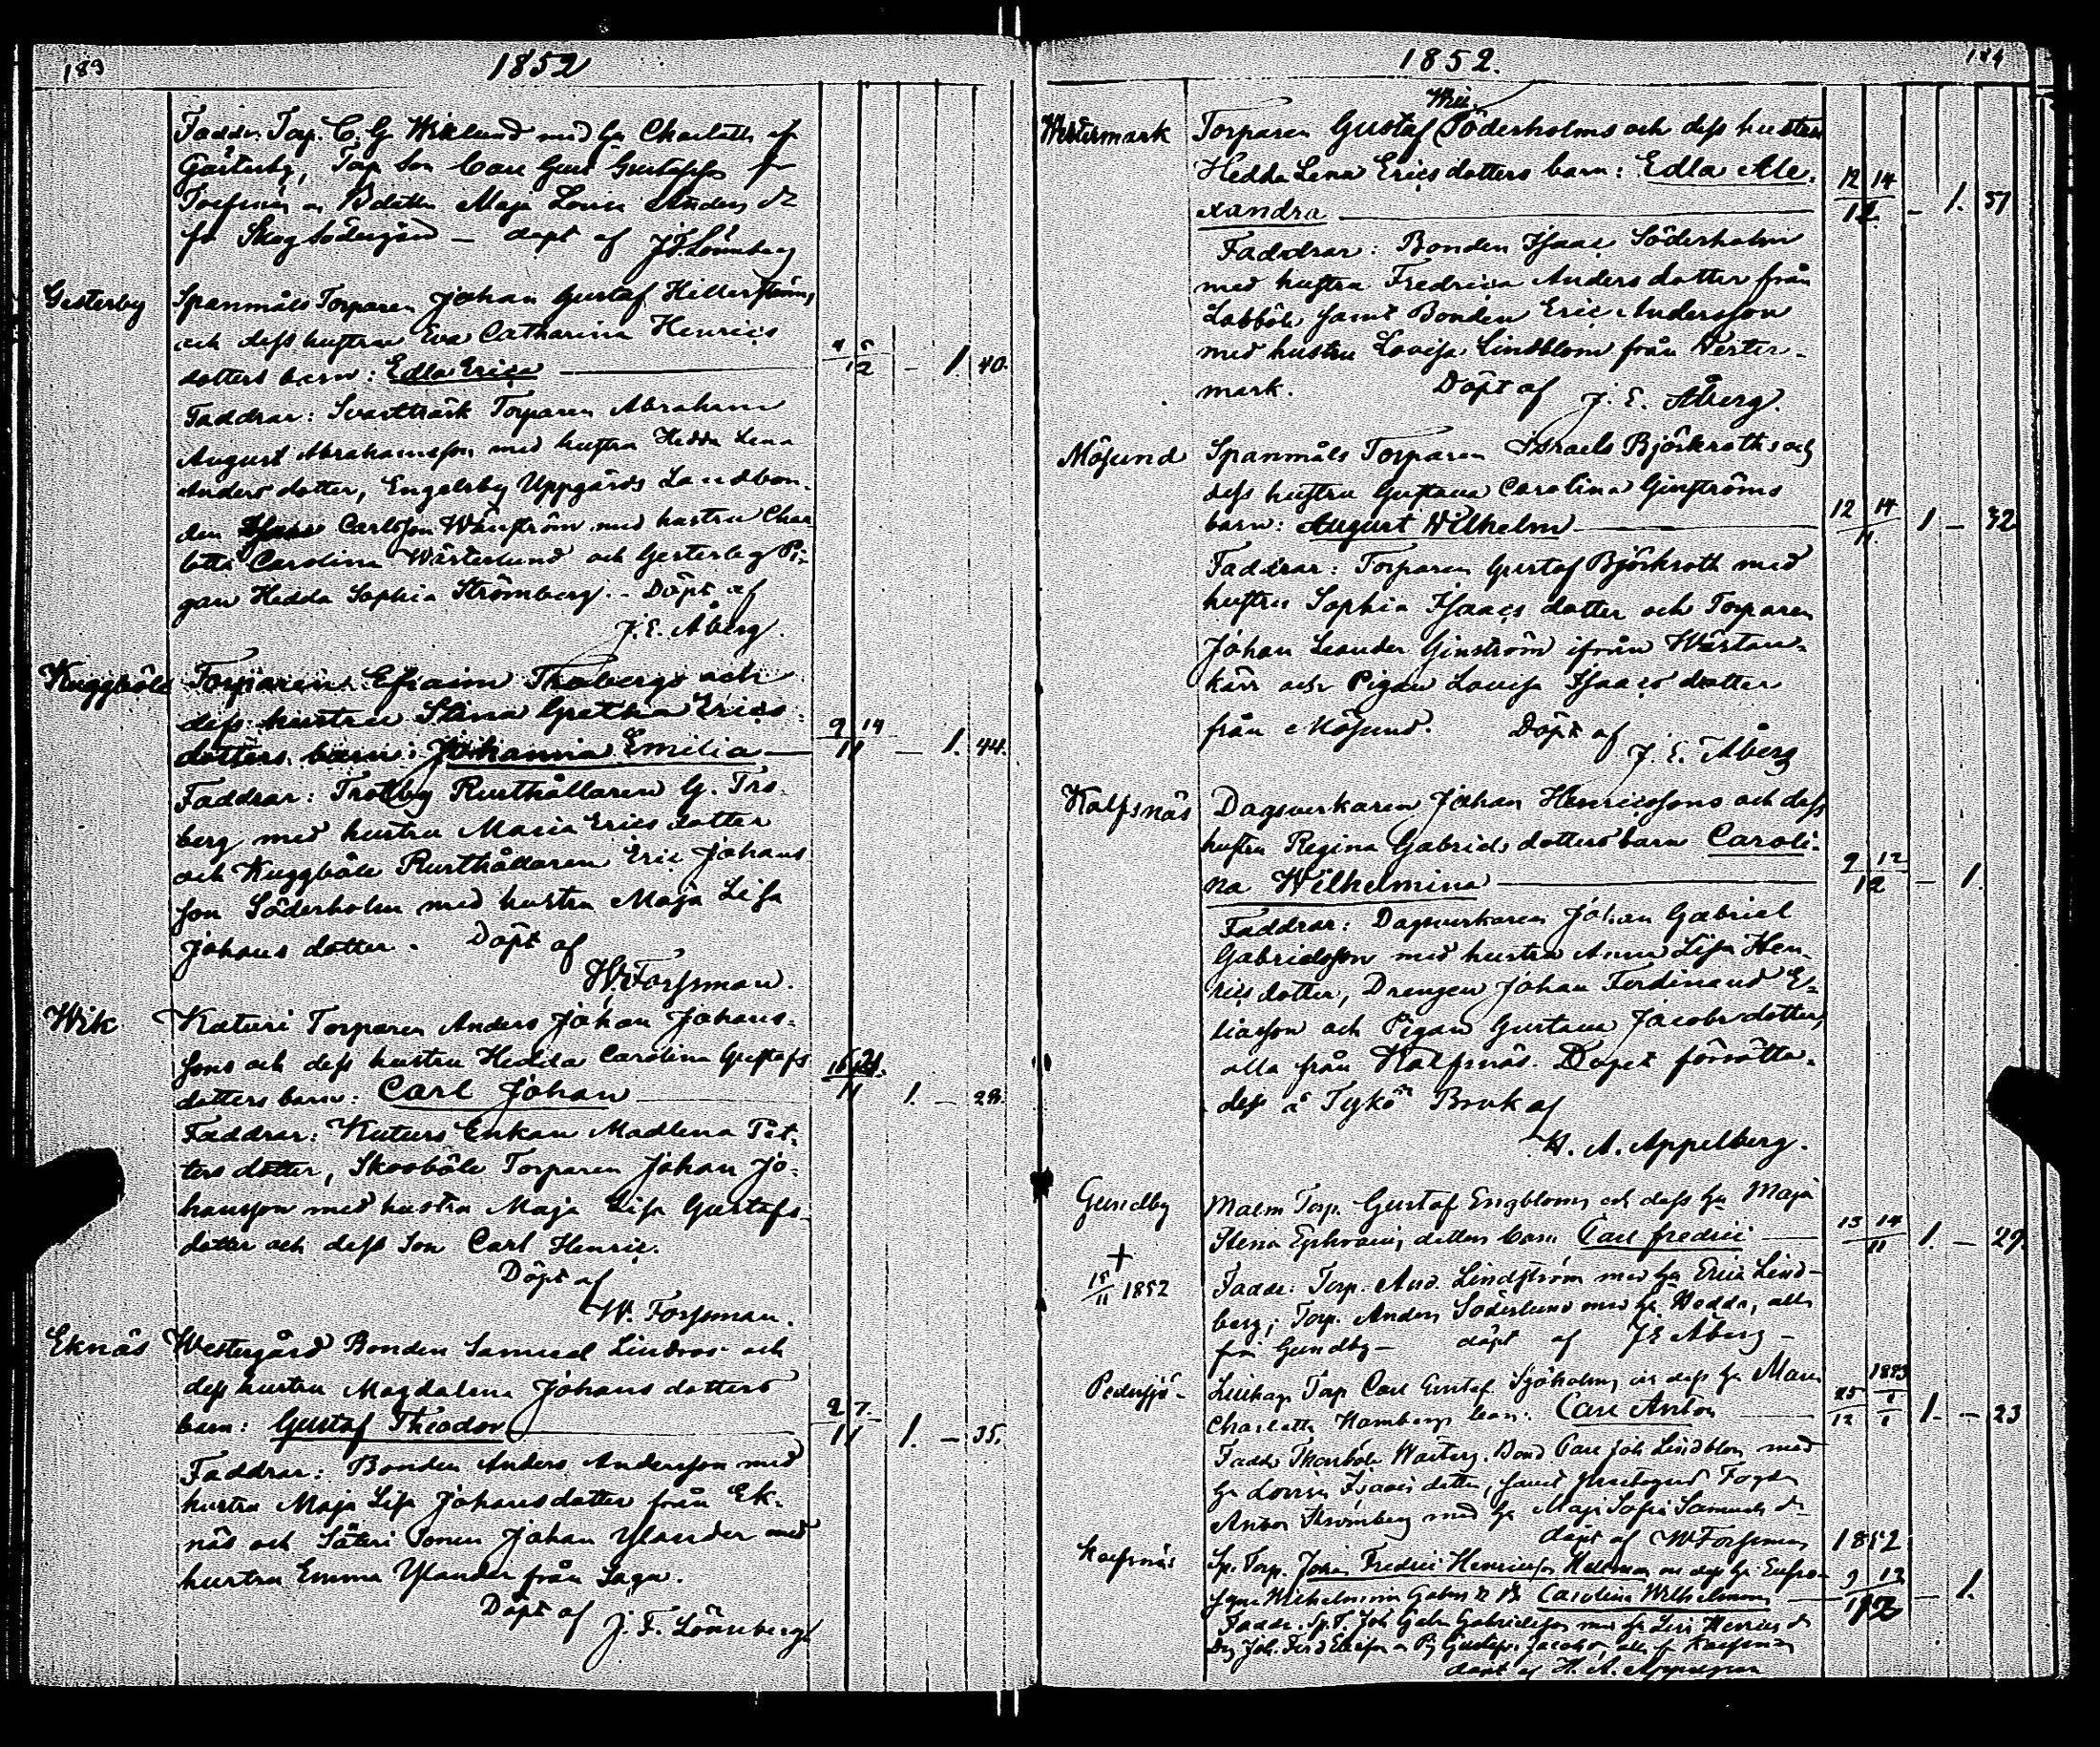 183
1852
Faddr. Torp. C. G. Wiklund med hu Charlotta
Gästerby, Torp. Son Carl Gust Gustafsson fr
Maja Lovisa Anders dr
fr Skog Södergård – döpt af J. F. Lönnberg
Gesterby Spanmåls Torparen Johan Gustaf Hellerströms
och dess hustrus Eva Catharina Henrics
dotters barn: Edla Erica 4 5 12 – 1. 40.
Faddrar: Svartträsk Torparen Abraham
August Abrahamsson med hustru Hedda Lena
Anders dotter, Engelsby Uppgårds Landbon-
den Carlsson Wänström med hustru Char
lotta Carolina Wästerlund och Gesterby Pi-
gan Hedda Sophia Strömberg. – Döpt af
J. E. Åberg.
Kuggböle Torparen Efraim Trobergs och
dess hustrus Stina Gretha Erics-
dotters barn: Johanna Emilia 9 14 11 – 1. 44.
Faddrar: Trotby Rusthållaren G. Tro-
berg med hustru Maria Erics dotter
och Kuggböle Rusthållaren Eric Johans
son Söderholm med hustru Maja Lisa
Johans dotter. Döpt af
W. Forssman.
Wik Katuri Torparen Anders Johan Johans-
sons och dess hustru Hedda Carolina Gustafs
dotters barn: Carl Johan 16 21 11 1. – 28.
Faddrar: Katurs Enkan Madlena Pet-
ters dotter, Skoböle Torparen Johan Jo-
hansson med hustru Maja Lisa Gustafs-
dotter och dess Son Carl Henric.
Döpt af
W. Forssman.
Eknäs Westergård Bonden Samuel Lindroos och
dess hustru Magdalena Johans dotters
barn: Gustaf Theodor 2 7 11 1. – 35.
Faddrar: Bonden Anders Andersson med
hustru Maja Lisa Johansdotter från Ek-
näs och Säteri Sonen Johan Ylander med
hustru Emma Ylander från Sagu.
Döpt af
J. F. Lönnberg
1852. 184
Westermark Torparen Gustaf Söderholms och dess hustrus
Hedda Lena Ericsdotters barn: Edla Ale-
xandra 12 14 12 – 1. 37
Faddrar: Bonden Isaac Söderholm
med hustru Fredrica Anders dotter från
Labböle samt Bonden Eric Andersson
med hustru Lovisa Lindblom från Wester-
mark. Döpt af J. E. Åberg.
Mösund Spanmåls Torparen Israels Björkroths och
dess hustru Gustava Carolina Ginströms
barn: August Wilhelm 12 14 11 1 – 32
Faddrar: Torparen Gustaf Björkroth med
hustru Sophia Isaacs dotter och Torparen
Johan Leander Ginström ifrån Wästan-
kärr och Pigan Lovisa Isaacs dotter
från Mösund. Döpt af
J. E. Åberg
Kalfsnäs Dagsverkaren Johan Henricssons och dess
hustru Regina Gabriels dotters barn Caroli-
na Wilhelmina 9 12 12 – 1.
Faddrar: Dagsverkaren Johan Gabriel
Gabrielsson med hustru Anna Lisa Hen-
rics dotter, Drengen Johan Ferdinand E-
liasson och Pigan Gustava Jacobsdotter,
alla från Kalfsnäs. Dopet förrätta-
des å Tykö Bruk af
H. A. Appelberg.
Gundby Malm Torp. Gustaf Engbloms och dess hu Maja
Stina Ephraims dotters barn Carl Fredric 13 14 11 1. – 29.
+ 15/11 1852 Faddr: Torp. And. Lindström med hu Erica Lind-
berg; Torp. Anders Söderlund med hu Hedda, alla
från Gundby – döpt af J E Åberg –
Torp Carl Gustaf Sjöholms och dess hu Maria 1853
Charlotta Hambergs barn: Carl Anton 25 12 1 1 1. – 23
Faddr Bond Carl Joh Lindblom med
hu Lovisa Isaacs dotter, samt Fogden
Anton Strömberg med hu Maja Sofia Samuels dr
döpt af W Forssman 1852
Kalfsnäs Sp. Torp. Johan Fredric Henricsson och dess hu
Wilhelmina Gabriels dr Carolina Wilhelmina 9 12 12 – 1.
Faddr. Sp. T. Joh Gabr Gabrielsson med hu Lisa Henrics dr
Joh. Ferd Eliasson alla fr Kalfsnäs
döpt af H. A. Appelberg